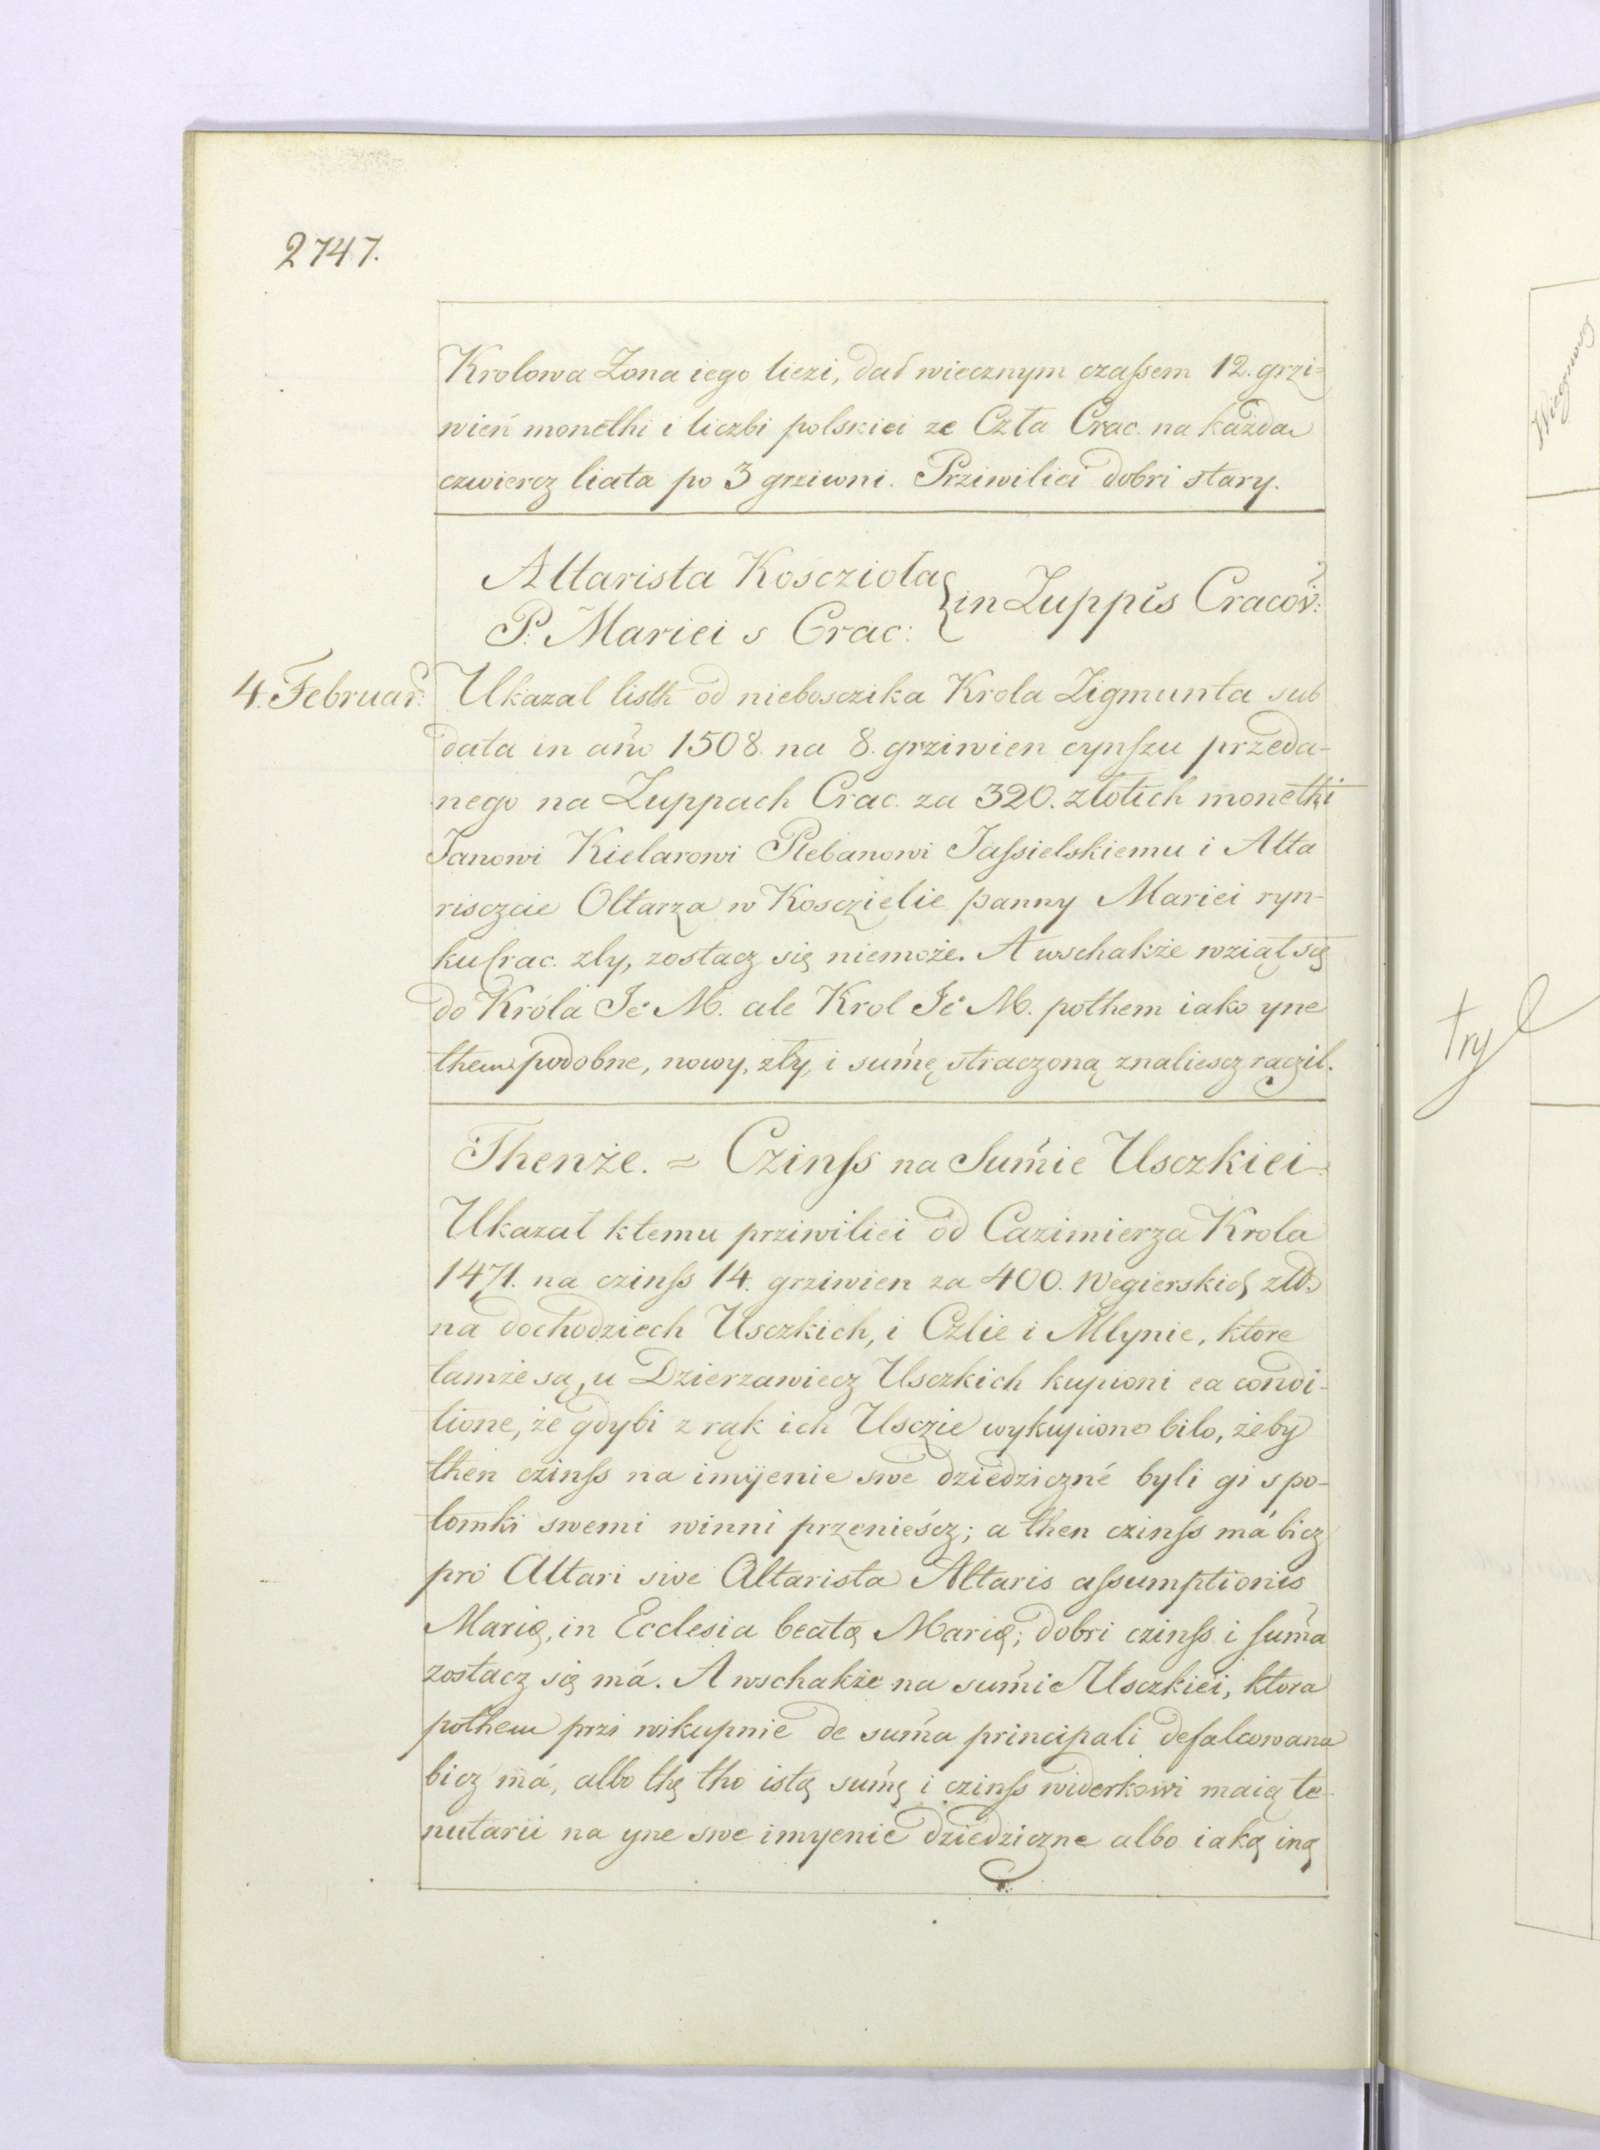 2747.
Krolowa Zona iego liezi, dał wiecznym czaſsem 12. grzi-
wień monethi i liczbi polskiei ze Czła Crac. na każda
czwiercz liata po 3 grziwni. Prziwiliei dobri stary.
Altarista Kosczioła
P. Mariei s Crac: } in Zuppis Cracov:
4. Februar:
Ukazal listh od niebosczika Krola Zigmunta sub
data in año 1508. na 8. grziwien cynſzu przeda-
nego na Zuppach Crac. za 320. złotich monethi
Janowi Kielarowi Plebanowi Jaſsielskiemu i Alta
risczcie Ołtarza w Kosczielie panny Mariei ryn-
ku Crac. zły, zostacz się niemoże. A wschakże wziął się
do Króla Je M. ale Krol Je M. pothem iako yne
themu podobne, nowy, zły, i sumę straczoną znaliescz raczil.
Thenże. = Czinſs na Sumie Usczkiei
Ukazał ktemu prziwiliei od Cazimierza Krola
1471. na czinſs 14. grziwien za 400. Wegierskich zło.
na dochodziech Usczkich, i Czlie i Młynie, ktore
tamże są, u Dzierzawiecz Usczkich kupioni ea condi-
tione, że gdybi z rąk ich Usczie wykupiono bilo, żeby
then czinſs na imÿenie swe dziedziczné byli gi s po-
tomki swemi winni przenieścz; a then czinſs má bicz
pro Altari sive Altarista Altaris aſsumptionis
Marię, in Ecclesia beatę Marię; dobri czinſs i ſuma
zostacz się má. A wschakże na sumie Usczkiei, ktora
pothem przi wikupnie de suma principali defalcowana
bicz má, albo thę tho istę sumę i czinſs widerkowi maią te-
nutarii na yne swe imyenie dziedziczne albo iaką iną
Węgrowcz
try